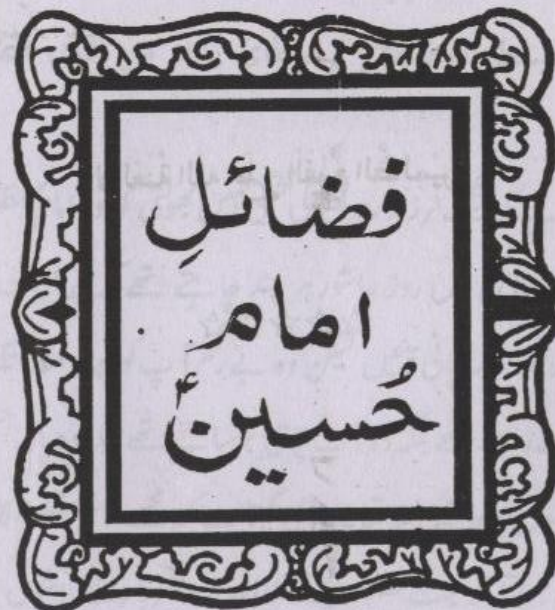 فضائلِ
امام
حُسینؑ